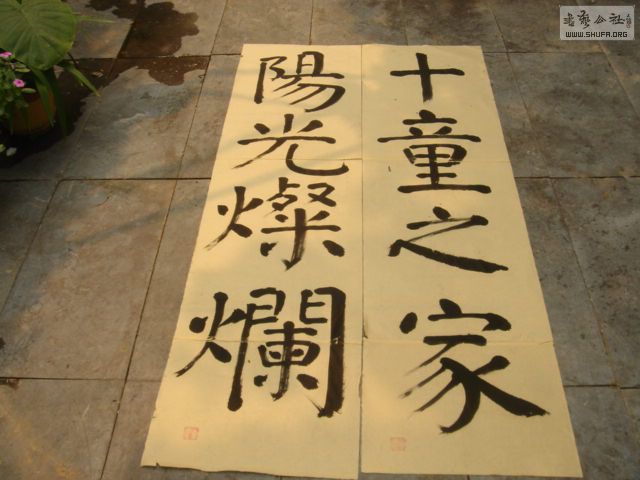 十童之家
陽光燦爛
書藝公社
WWW.SHUFA.ORG